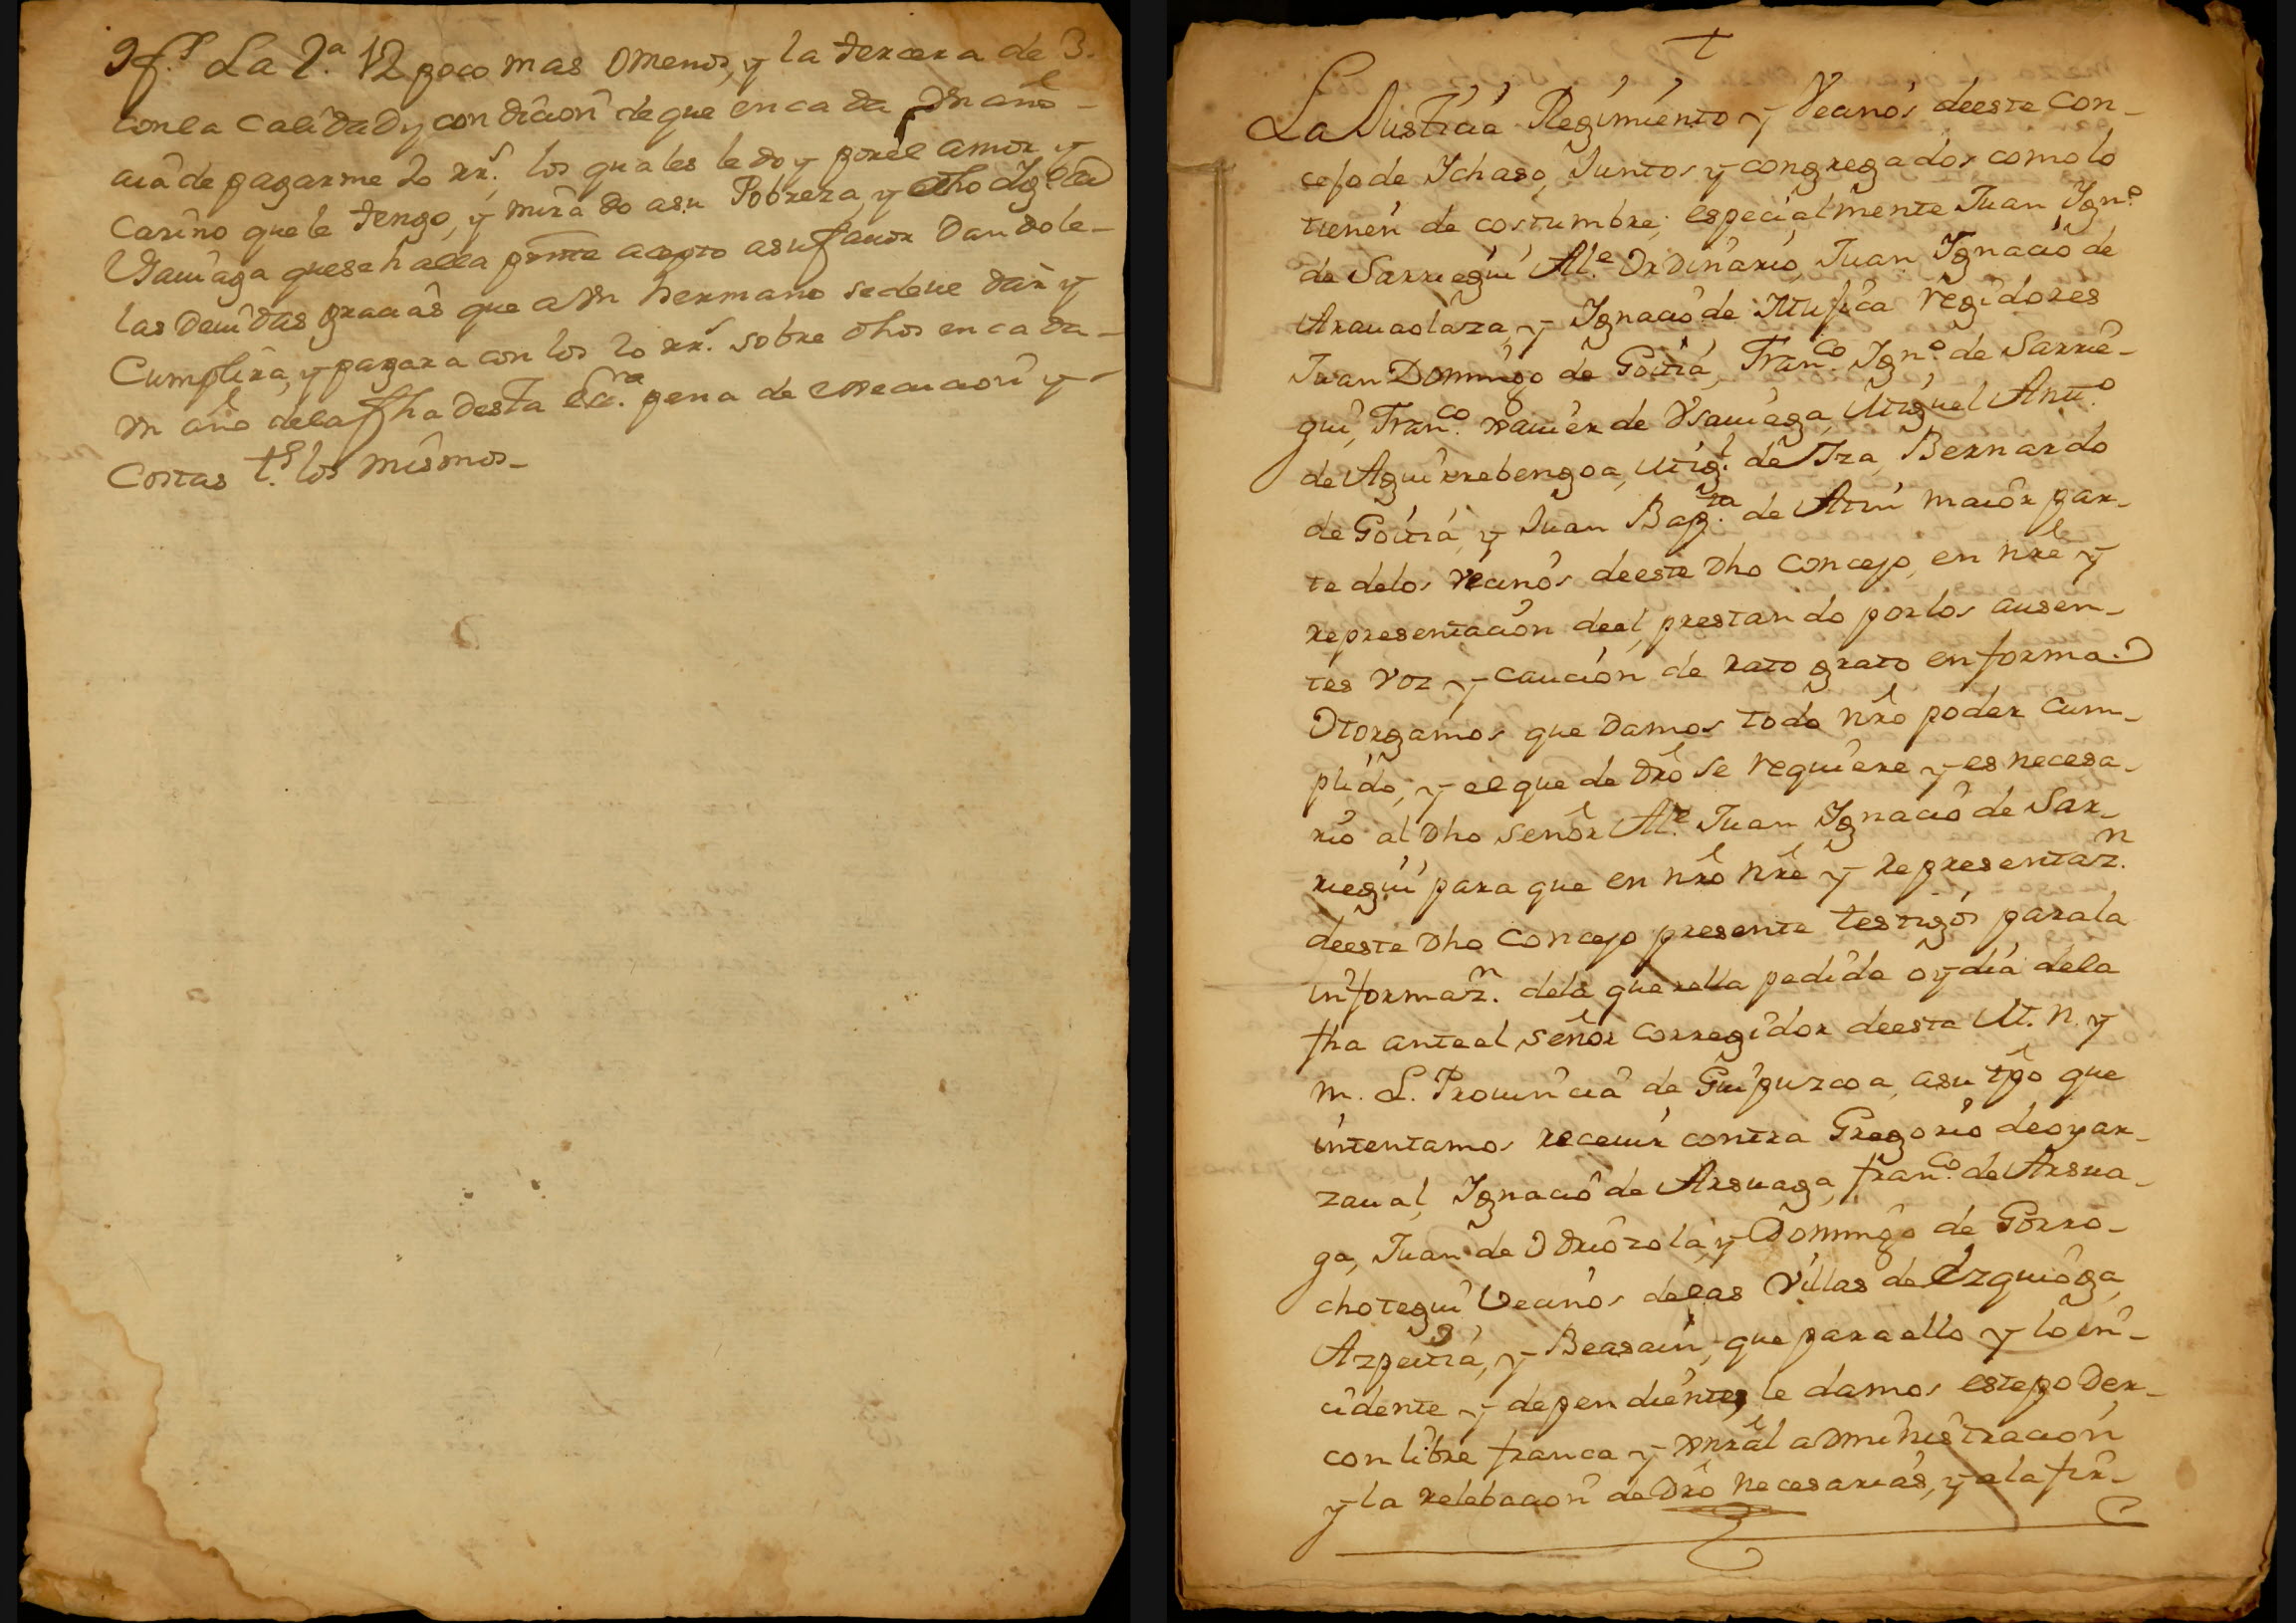 9 f.s La 2.a 12 poco mas omenos, y la tercera de 3.
conla calidad y condicion de que en cada Un año
aia de pagarme 20 rr.s los quales le doy por el amor y
Cariño que le tengo, y mirãdo asu Pobreza, y dho Ygn.o de
Vsauiaga quese halla prnte acepto asufauor Dandole
las Deuidas gracias que a Un hermano sedeue dar y
Cumplira, y pagara con los 20 rr.s sobre dhos en cada
Un año dela fha desta Es.ra pena de execucion y
Costas t.s los mismos
La Justicia Regimiento y Vecinos deeste Con-
cejo de Ychaso, Juntos y congregados como lo
tienen de costumbre, especialmente Juan Ygn.o
de Sarriegui Al.e Ordinario, Juan Ygnacio de
Arauaolaza, y Ygnacio de Mujica regidores
Juan Domingo de Goitia, Fran.co Ygn.o de Sarrie-
gui, Fran.co xauier de Vsauiaga, Miguel Ant.o
de Aguirrebengoa, Mig.l de Yza, Bernardo
de Goitia, y Juan Bap.ta de Atin maior par-
te delos vecinos deeste dho Concejo, en nre y
representacion deel, prestando porlos ausen-
tes voz y caucion de rato grato enforma.
Otorgamos que Damos todo nro poder cum-
plido, y elque de dro se requiere y es necesa-
rio al dho señor Al.e Juan Ygnacio de Sar-
riegui para que en nro nre y representaz.n
deeste dho Concejo presente testigos parala
informaz.n dela querella pedida oydia dela
fha anteel señor corregidor deesta M. N. y
M. L. Prouincia de Guipuzcoa, asu tpo que
intentamos receuir contra Gregorio deoyar-
zaual, Ygnacio de Arsuaga, fran.co de Arsua-
ga, Juan de Odriozola, y Domingo de Gorro-
chotegui Vecinos delas Villas de Ezquioga,
Azpeitia, y Beasain, que paraello y lo in-
cidente y dependiente, le damos estepoder
con libre franca y gnral administracion
y la relebacion de dro necesarias, y ala fir-